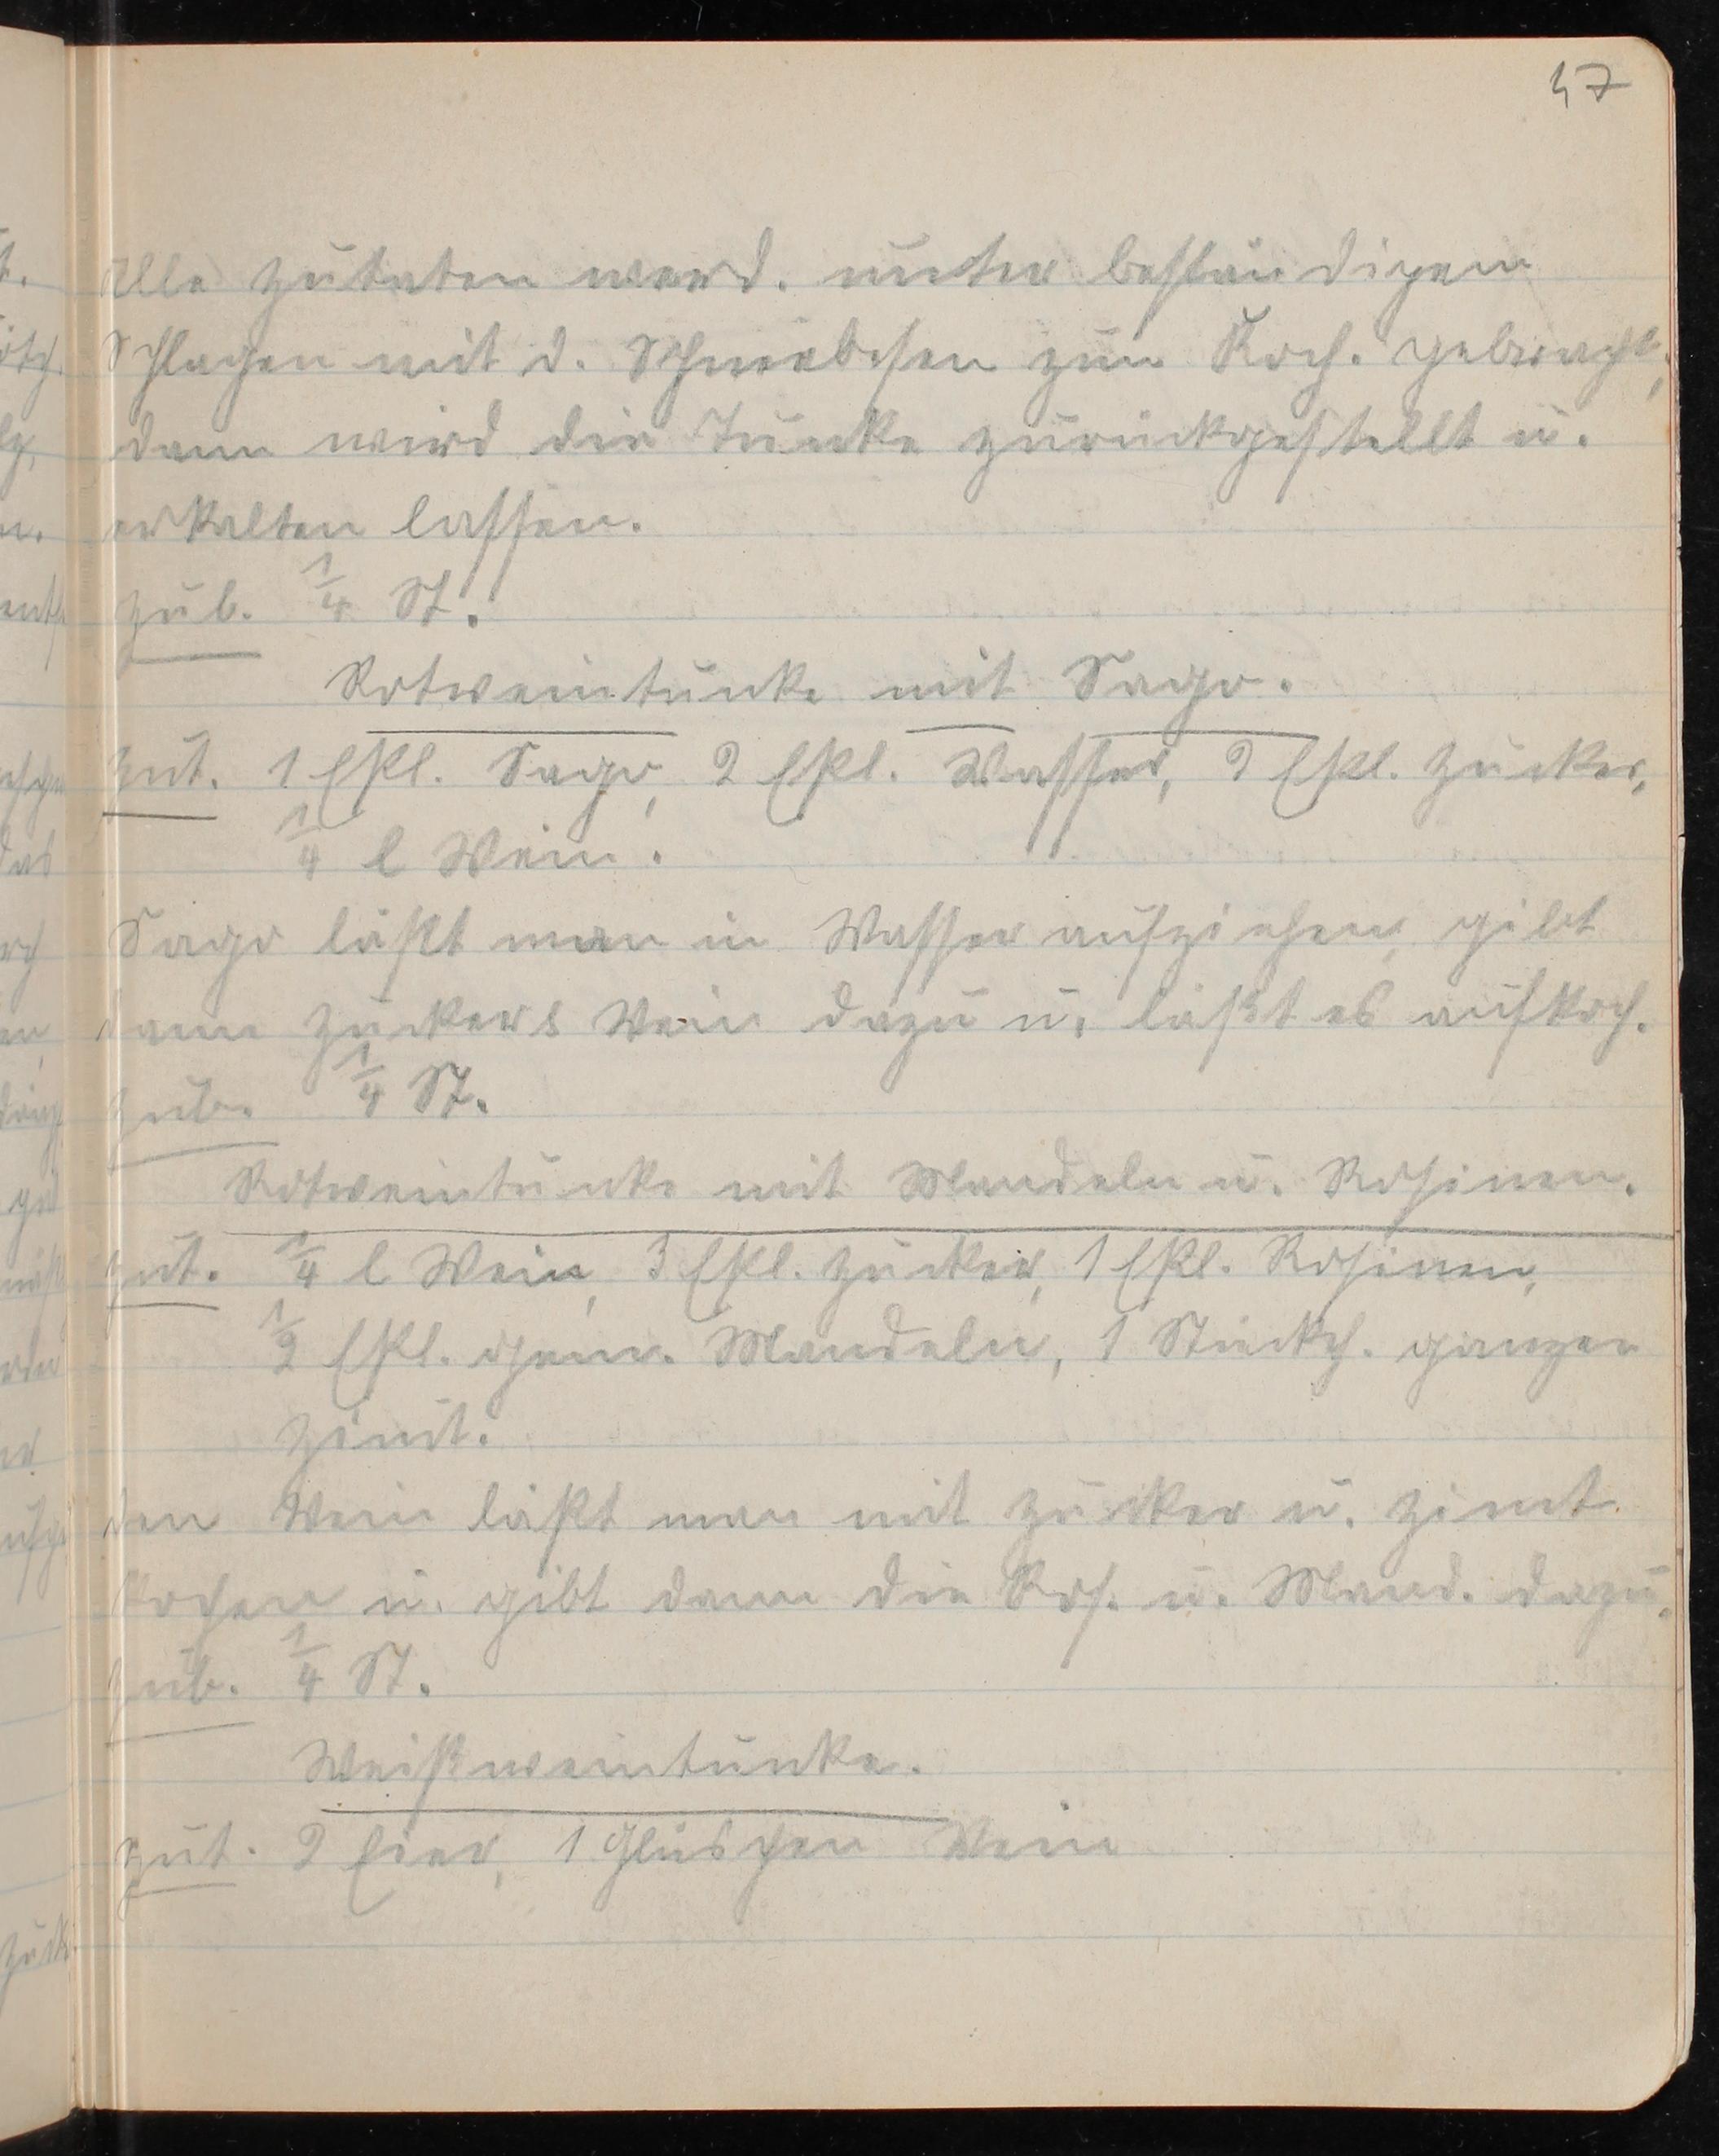 47
Alle Zutaten werd. unter beständigem
Schlagen mit d. Schneebesen zum Koch. gebracht,
dann wird die Tunke zurückgestellt u.
erkalten lassen.
Zub. 1/4 St.
Rotweintunke mit Sago.
Zut. 1 Eßl. Sago, 2 Eßl. Wasser, 2 Eßl. Zucker,
1/4 l Wein.
Sago läßt man in Wasser aufziehen, gibt
dann Zucker & Wein dazu u. läßt es aufkoch.
Zub. 1/4 St.
Rotweintunke mit Mandeln u. Rosinen.
Zut. 1/4 l Wein, 3 Eßl. Zucker, 1 Eßl. Rosinen,
1/2 Eßl. gem. Mandeln, 1 Stückch. ganzen
Zimt.
Den Wein läßt man mit Zucker u. Zimt
kochen u. gibt dann die Ros. u. Mand. dazu.
Zub. 1/4 St.
Weißweintunke.
Zut. 2 Eier, 1 Gläschen Wein